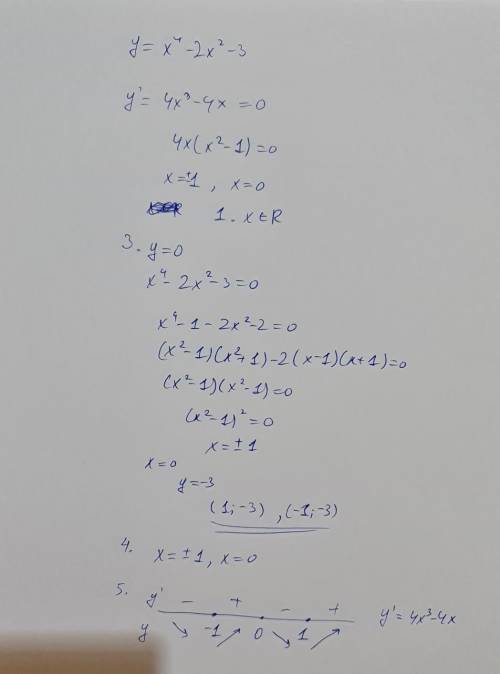 y = x⁴ - 2x² - 3
y' = 4x³ - 4x = 0
4x(x² - 1) = 0
x = ±1, x = 0
1. x ∈ R
3. y = 0
x⁴ - 2x² - 3 = 0
x⁴ - 1 - 2x² - 2 = 0
(x² - 1)(x² + 1) - 2(x - 1)(x + 1) = 0
(x² - 1)(x² - 1) = 0
(x² - 1)² = 0
x = ±1
x = 0
y = -3
(1; -3), (-1; -3)
4. x = ±1, x = 0
5. y' - + - + y' = 4x³ - 4x
y ↘ -1 ↗ 0 ↘ 1 ↗